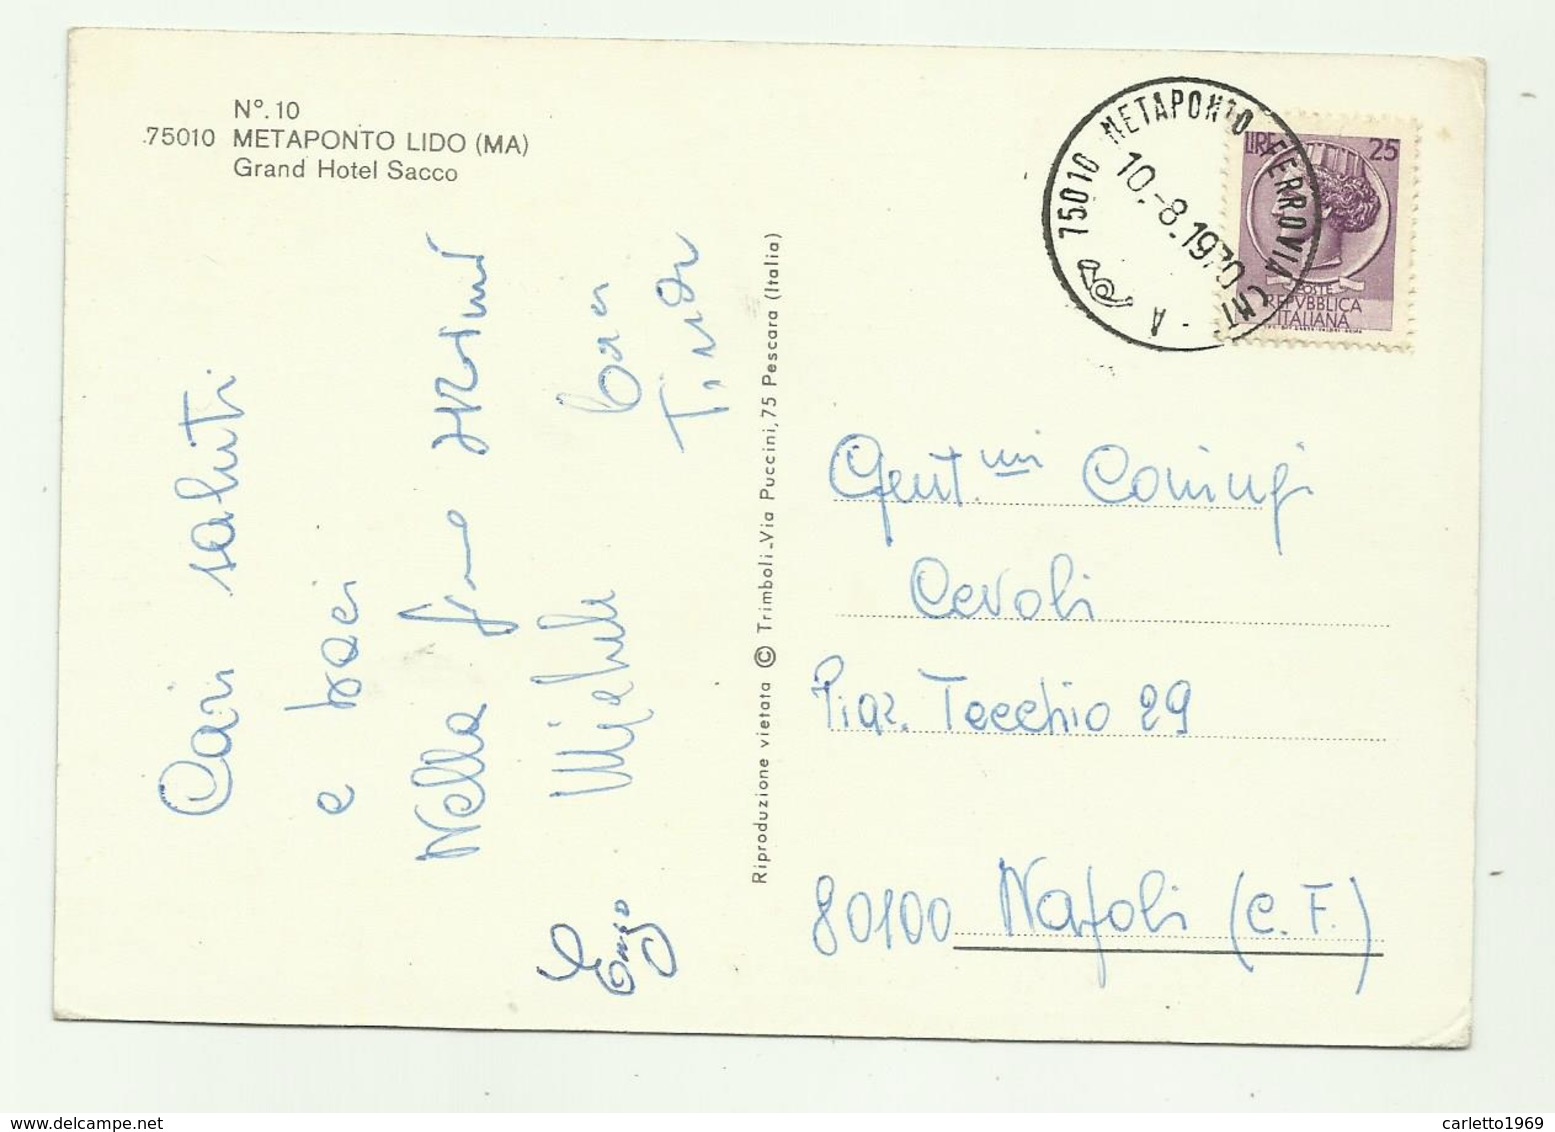 N°. 10
75010 METAPONTO LIDO (MA)
Grand Hotel Sacco
75010 METAPONTO FERROVIA (MT) - A
10.-8.1970
LIRE 25
POSTE
REPVBBLICA
ITALIANA
Cari saluti
e baci
Nella
Michele
baci
Enzo
Riproduzione vietata © Trimboli-Via Puccini, 75 Pescara (Italia)
Gent.mi Coniugi
Cevoli
Piaz. Tecchio 29
80100 Napoli (C.F.)
carletto1969